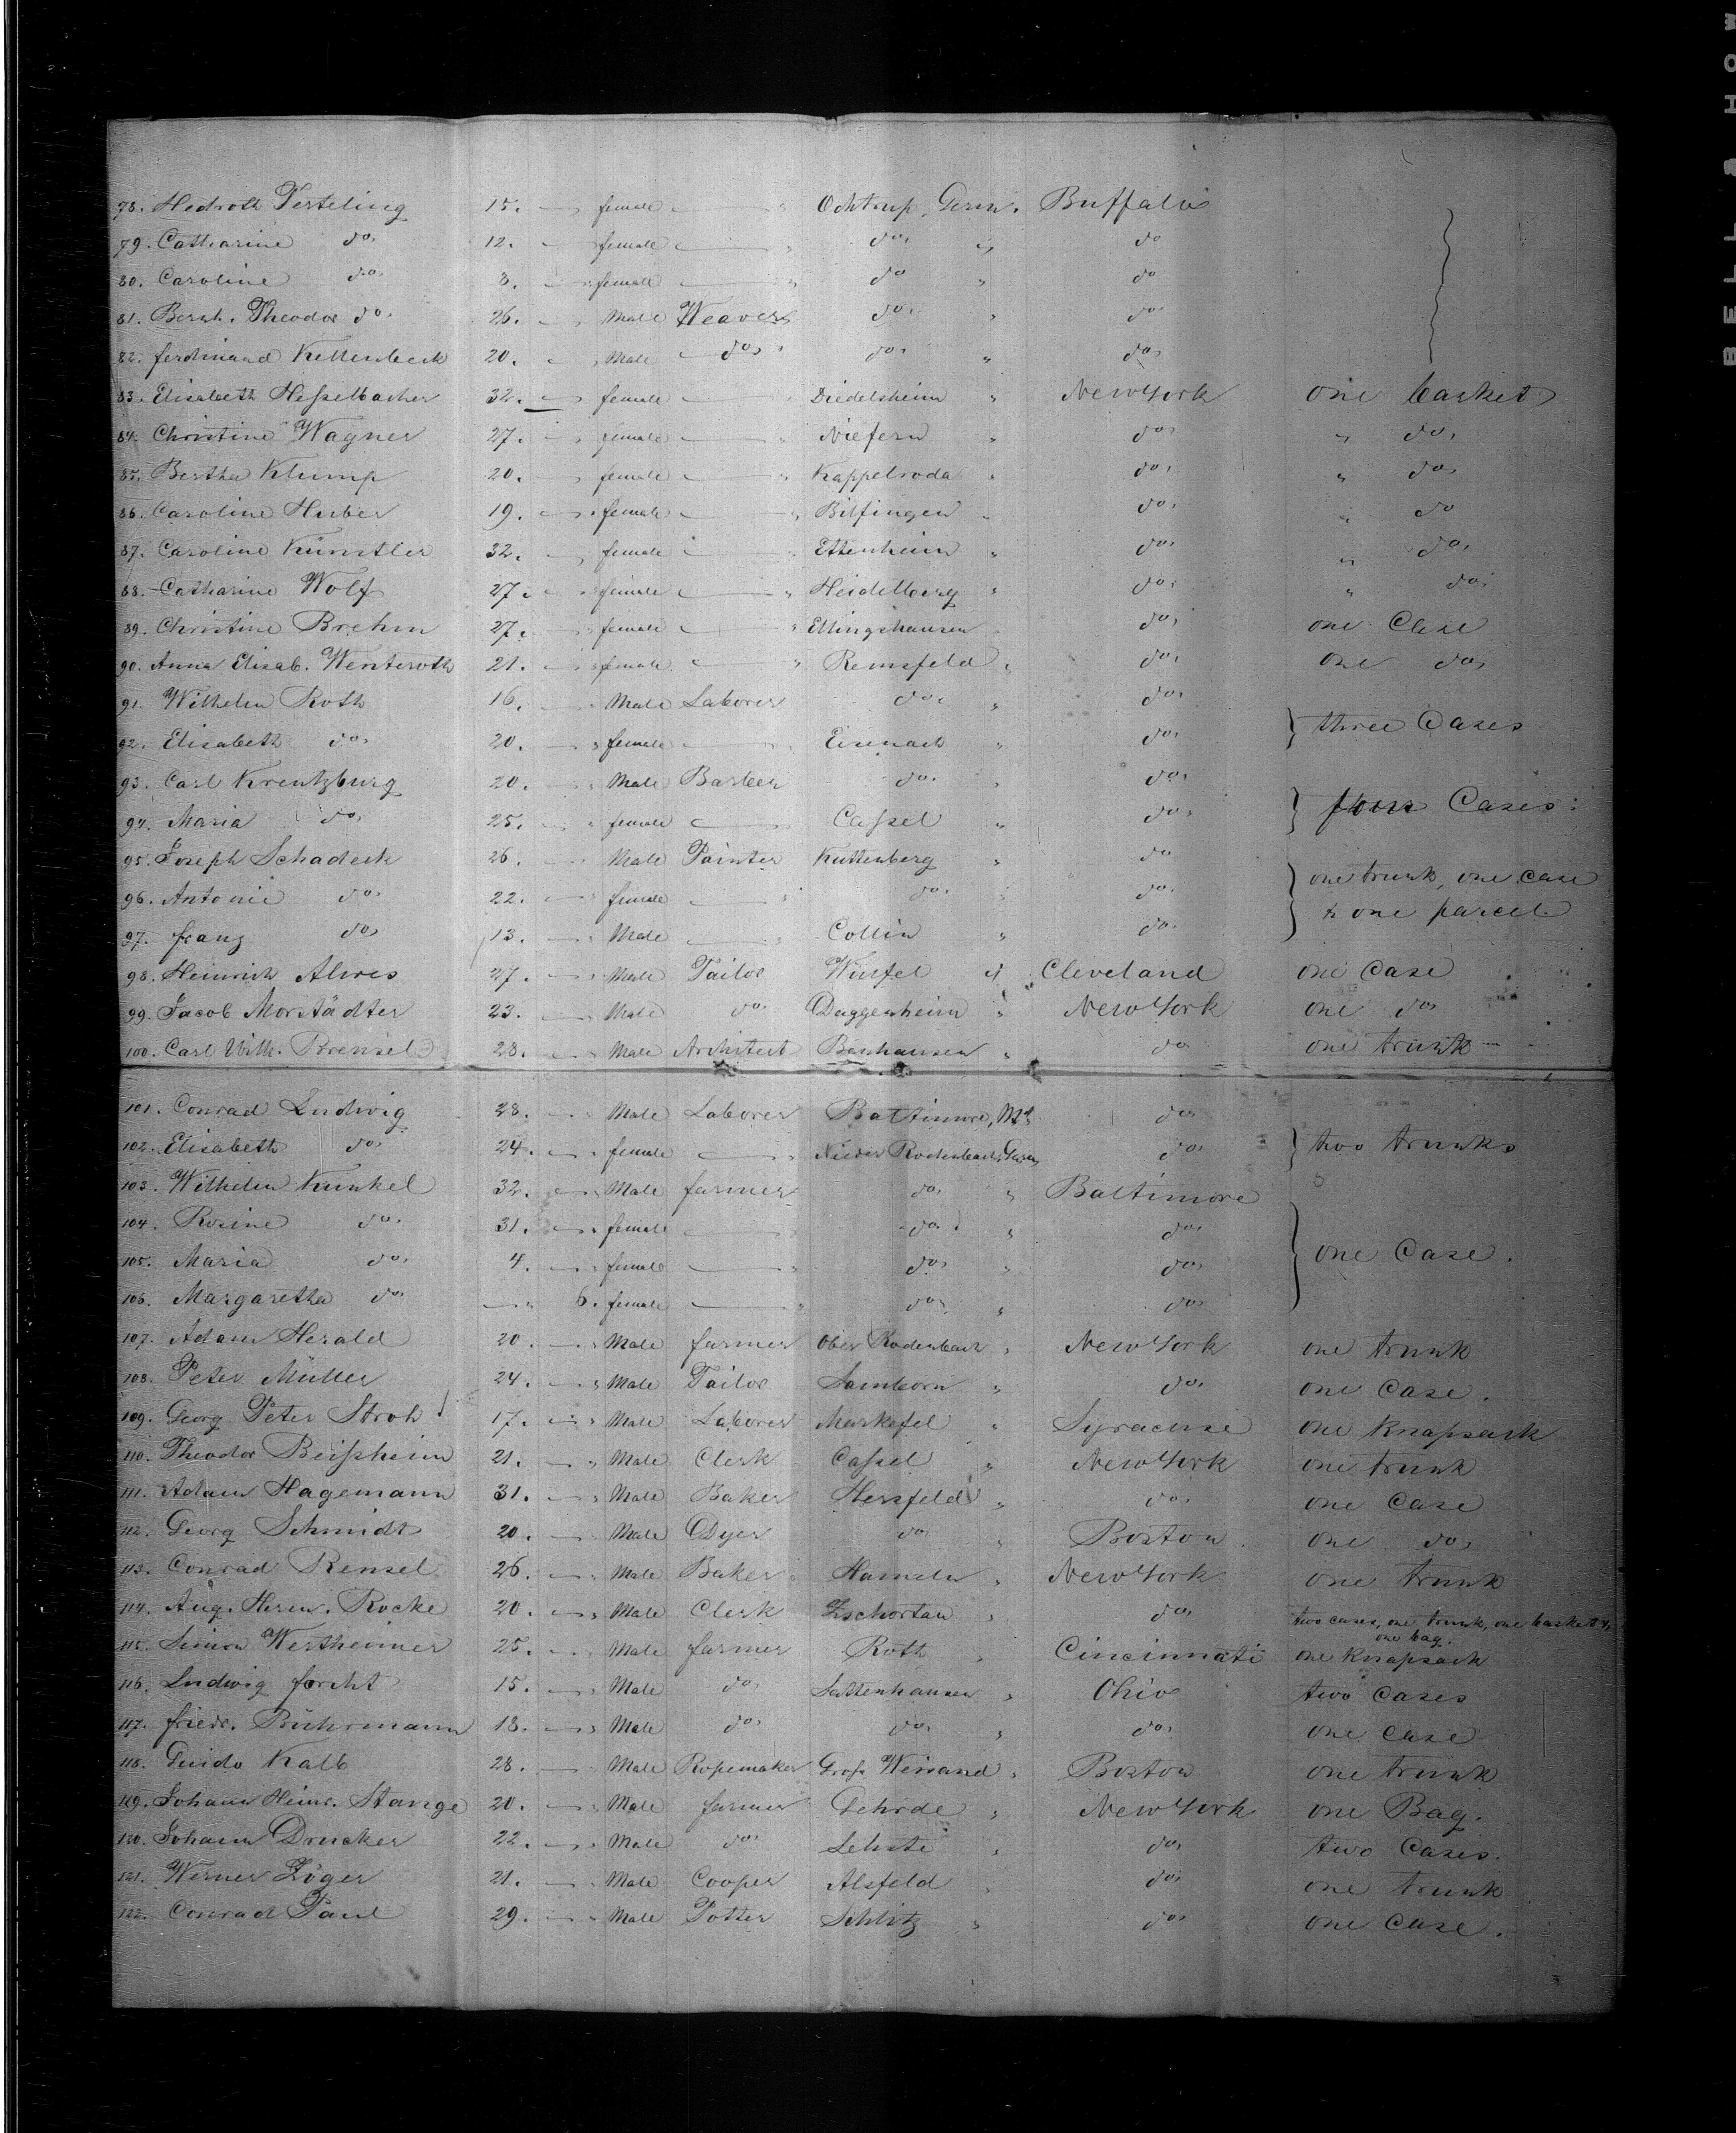 78. Hedroth Terteling 15. female Ochtrup, Germ. Buffalo
79. Catharine do. 12. female do. " do
80. Caroline do. 8. female do " do
81. Bernh. Theodor do. 26. Male Weaver do. " do.
82. ferdinand Kettenbeck 20. Male do. do. " do.
83. Elisabeth Heßelbacher 32. female Diedelsheim " New York one basket
84. Christine Wagner 27. female Niefern " do. " do.
85. Bertha Klump 20. female Kappelroda " do. " do.
86. Caroline Huber 19. female Bilfingen " do. " do
87. Caroline Künstler 32. female Ettenheim " do. " do.
88. Catharine Wolf 27. female Heidelberg " do. " do.
89. Christine Brehm 27. female Ellingshausen " do. one Case
90. Anna Elisab. Wenteroth 21. female Remsfeld " do. one do.
91. Wilhelm Roth 16. Male Laborer do. " do.
92. Elisabeth do. 20. female Eisenach " do. } three Cases
93. Carl Kreutzburg 20. Male Barber do. " do.
94. Maria do. 25. female Caßel " do. } four Cases
95. Joseph Schadeck 26. Male Painter Kuttenberg " do
96. Antonie do. 22. female do. " do. } one trunk, one case
97. franz do. 13. Male Collin " do. & one parcel.
98. Heinrich Alves 27. Male Tailor Wülfel " Cleveland one Case
99. Jacob Morstädter 23. Male do. Daggenheim " New York one do.
100. Carl Wilh. Brensel 28. Male Architect Banhausen " do one trunk
101. Conrad Ludwig 28. Male Laborer Baltimore, Md. do.
102. Elisabeth do. 24. female Nieder Rodenbach, Germ. do. } two trunks
103. Wilhelm Kunkel 32. Male farmer do. " Baltimore
104. Rosine do. 31. female do. " do.
105. Maria do. 4. female do. " do. } one Case.
106. Margaretha do. 6. female do. " do.
107. Adam Herald 20. Male farmer Ober Rodenbach " New York one trunk
108. Peter Müller 24. Male Tailor Lamborn " do. one Case.
109. Georg Peter Stroh 17. Male Laborer Merkefel " Syracuse one Knapsack
110. Theodor Beißheim 21. Male Clerk Caßel " New York one trunk
111. Adam Hagemann 31. Male Baker Hersfeld " do. one Case
112. Georg Schmidt 20. Male Dyer do. " Boston one do.
113. Conrad Rensel 26. Male Baker Hameln " New York one trunk
114. Aug. Herm. Rocke 20. Male Clerk Zschortau " do. two cases, one trunk, one basket &
one bag.
115. Simon Wertheimer 25. Male farmer Roth " Cincinnati one Knapsack
116. Ludwig forcht 15. Male do. Lattenhausen " Ohio two Cases
117. friedr. Bührmann 18. Male do. do. " do. one Case
118. Guido Kalb 28. Male Ropemaker Groß Weirand " Boston one trunk
119. Johann Heinr. Stange 20. Male farmer Gehrde " New York one Bag.
120. Johann Drucker 22. Male do. Lehste " do. two Cases.
121. Werner Zöger 21. Male Cooper Alsfeld " do. one trunk
122. Conrad Paul 29. Male Potter Schlitz " do. one Case.
BELL & HOW